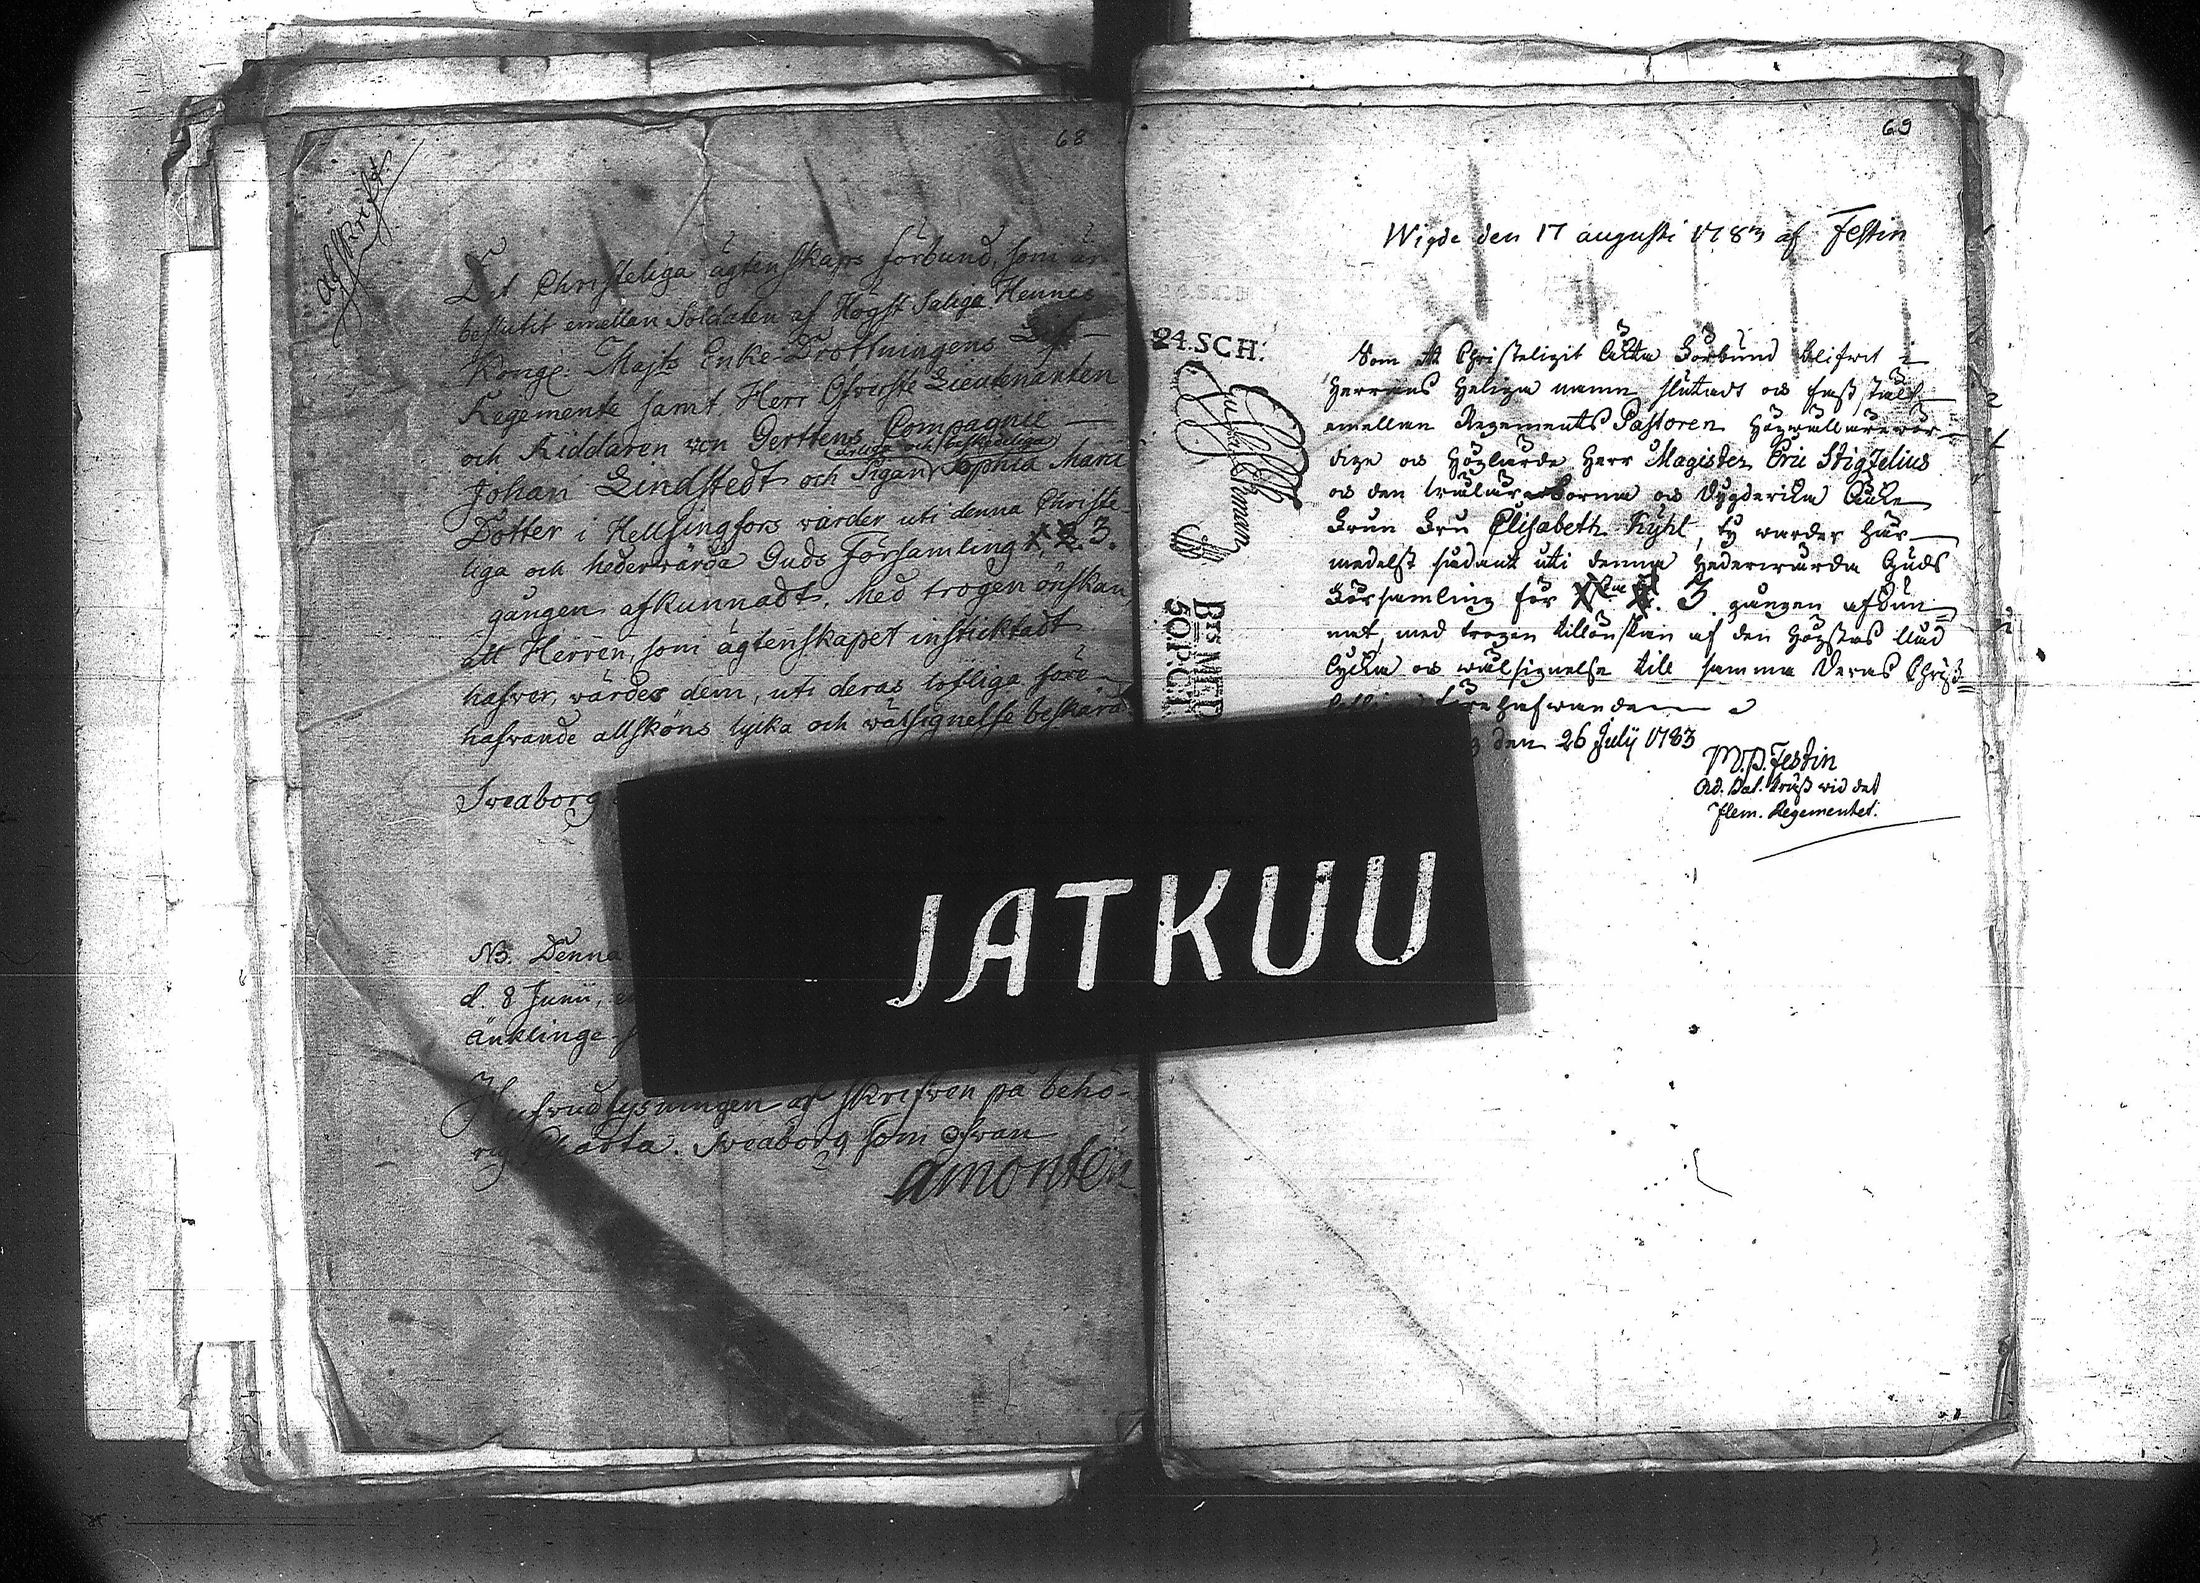 68
afskrift.
Det Christeliga ägtenskaps förbund, som är
beslutit emellan Soldaten af Högst Saliga Hennes
Kongl. Majts Enke-Drottningens Lif-
Regemente samt Herr Öfverste Lieutenanten
och Riddaren von Gerttens Compagnie
ärliga och beskedeliga
Johan Lindstedt och Pigan Sophia Maria
Dotter i Hellsingfors varder uti denna Christe-
liga och hedervärda Guds Församling 1. 2. 3.
gången afkunnadt. Med trogen önskan,
att Herren, som ägtenskapet insticktadt
hafver, värdes dem, uti deras lofliga före-
hafvande allsköns lycka och välsignelse beskära
Sveaborg
NB. Denna
d. 8 Junii,
Änklinge
Hufvudlysningen är skrifven på behö-
rig Charta. Sveaborg som ofvan
Amontén
69
Wigde den 17 augusti 1783 af Festin
24.SCH:
BtsMED
5ÖR:CH
Som ett Christeligit Äkta Förbund blifwit i
Herrans Heliga namn slutadt och fast stält
emellan Regements Pastoren Högwällärewör-
dige och Höglärde Herr Magister Eric Stigzelius
och den wälärborna och Dygderika Enke
Frun Fru Elisabeth Kyhl, ty warder här-
medelst sådant uti denna Hederwärda Guds
Församling för 1sta 2. 3. gången afkun-
nat, med trogen tillönskan af den Högstas Nåd
Lycka och wälsignelse till samma Deras Christ-
förehafwande
den 26 Julÿ 1783
M.P. Festin
Ad. Bat. Präst wid det
Flem. Regementet.
JATKUU